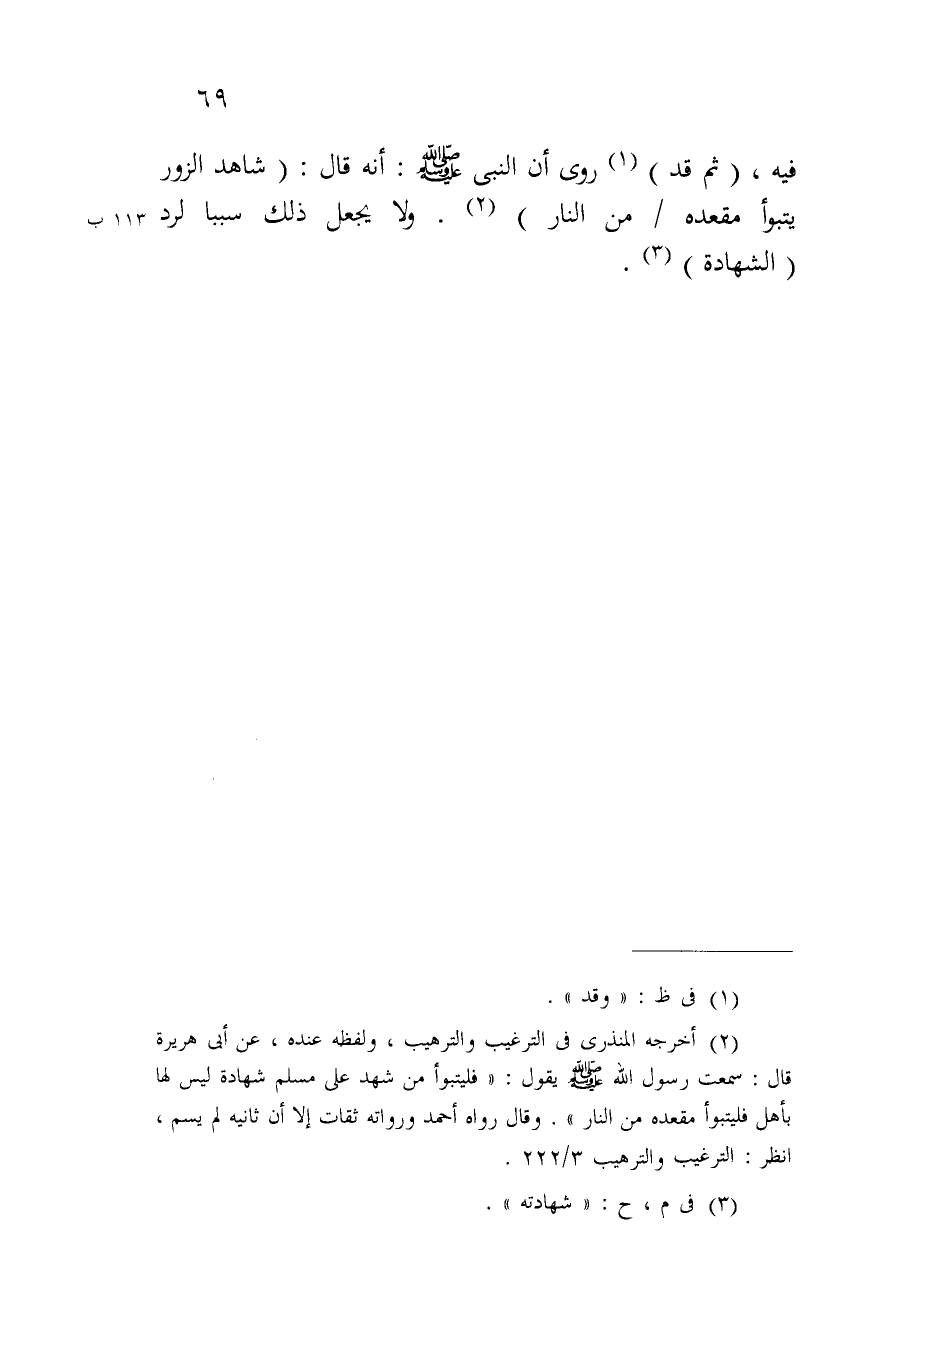 ٦٩
فيه ، ( ثم قد ) (١) روى أن النبى ﷺ : أنه قال : ( شاهد الزور
يتبوأ مقعده / من النار ) (٢) . ولا يجعل ذلك سببا لرد ١١٣ ب
( الشهادة ) (٣) .
(١) فى ظ : « وقد » .
(٢) أخرجه المنذرى فى الترغيب والترهيب ، ولفظه عنده ، عن أبى هريرة
قال : سمعت رسول الله ﷺ يقول : « فليتبوأ من شهد على مسلم شهادة ليس لها
بأهل فليتبوأ مقعده من النار » . وقال رواه أحمد ورواته ثقات إلا أن ثانيه لم يسم ،
انظر : الترغيب والترهيب ٢٢٢/٣ .
(٣) فى م ، ح : « شهادته » .